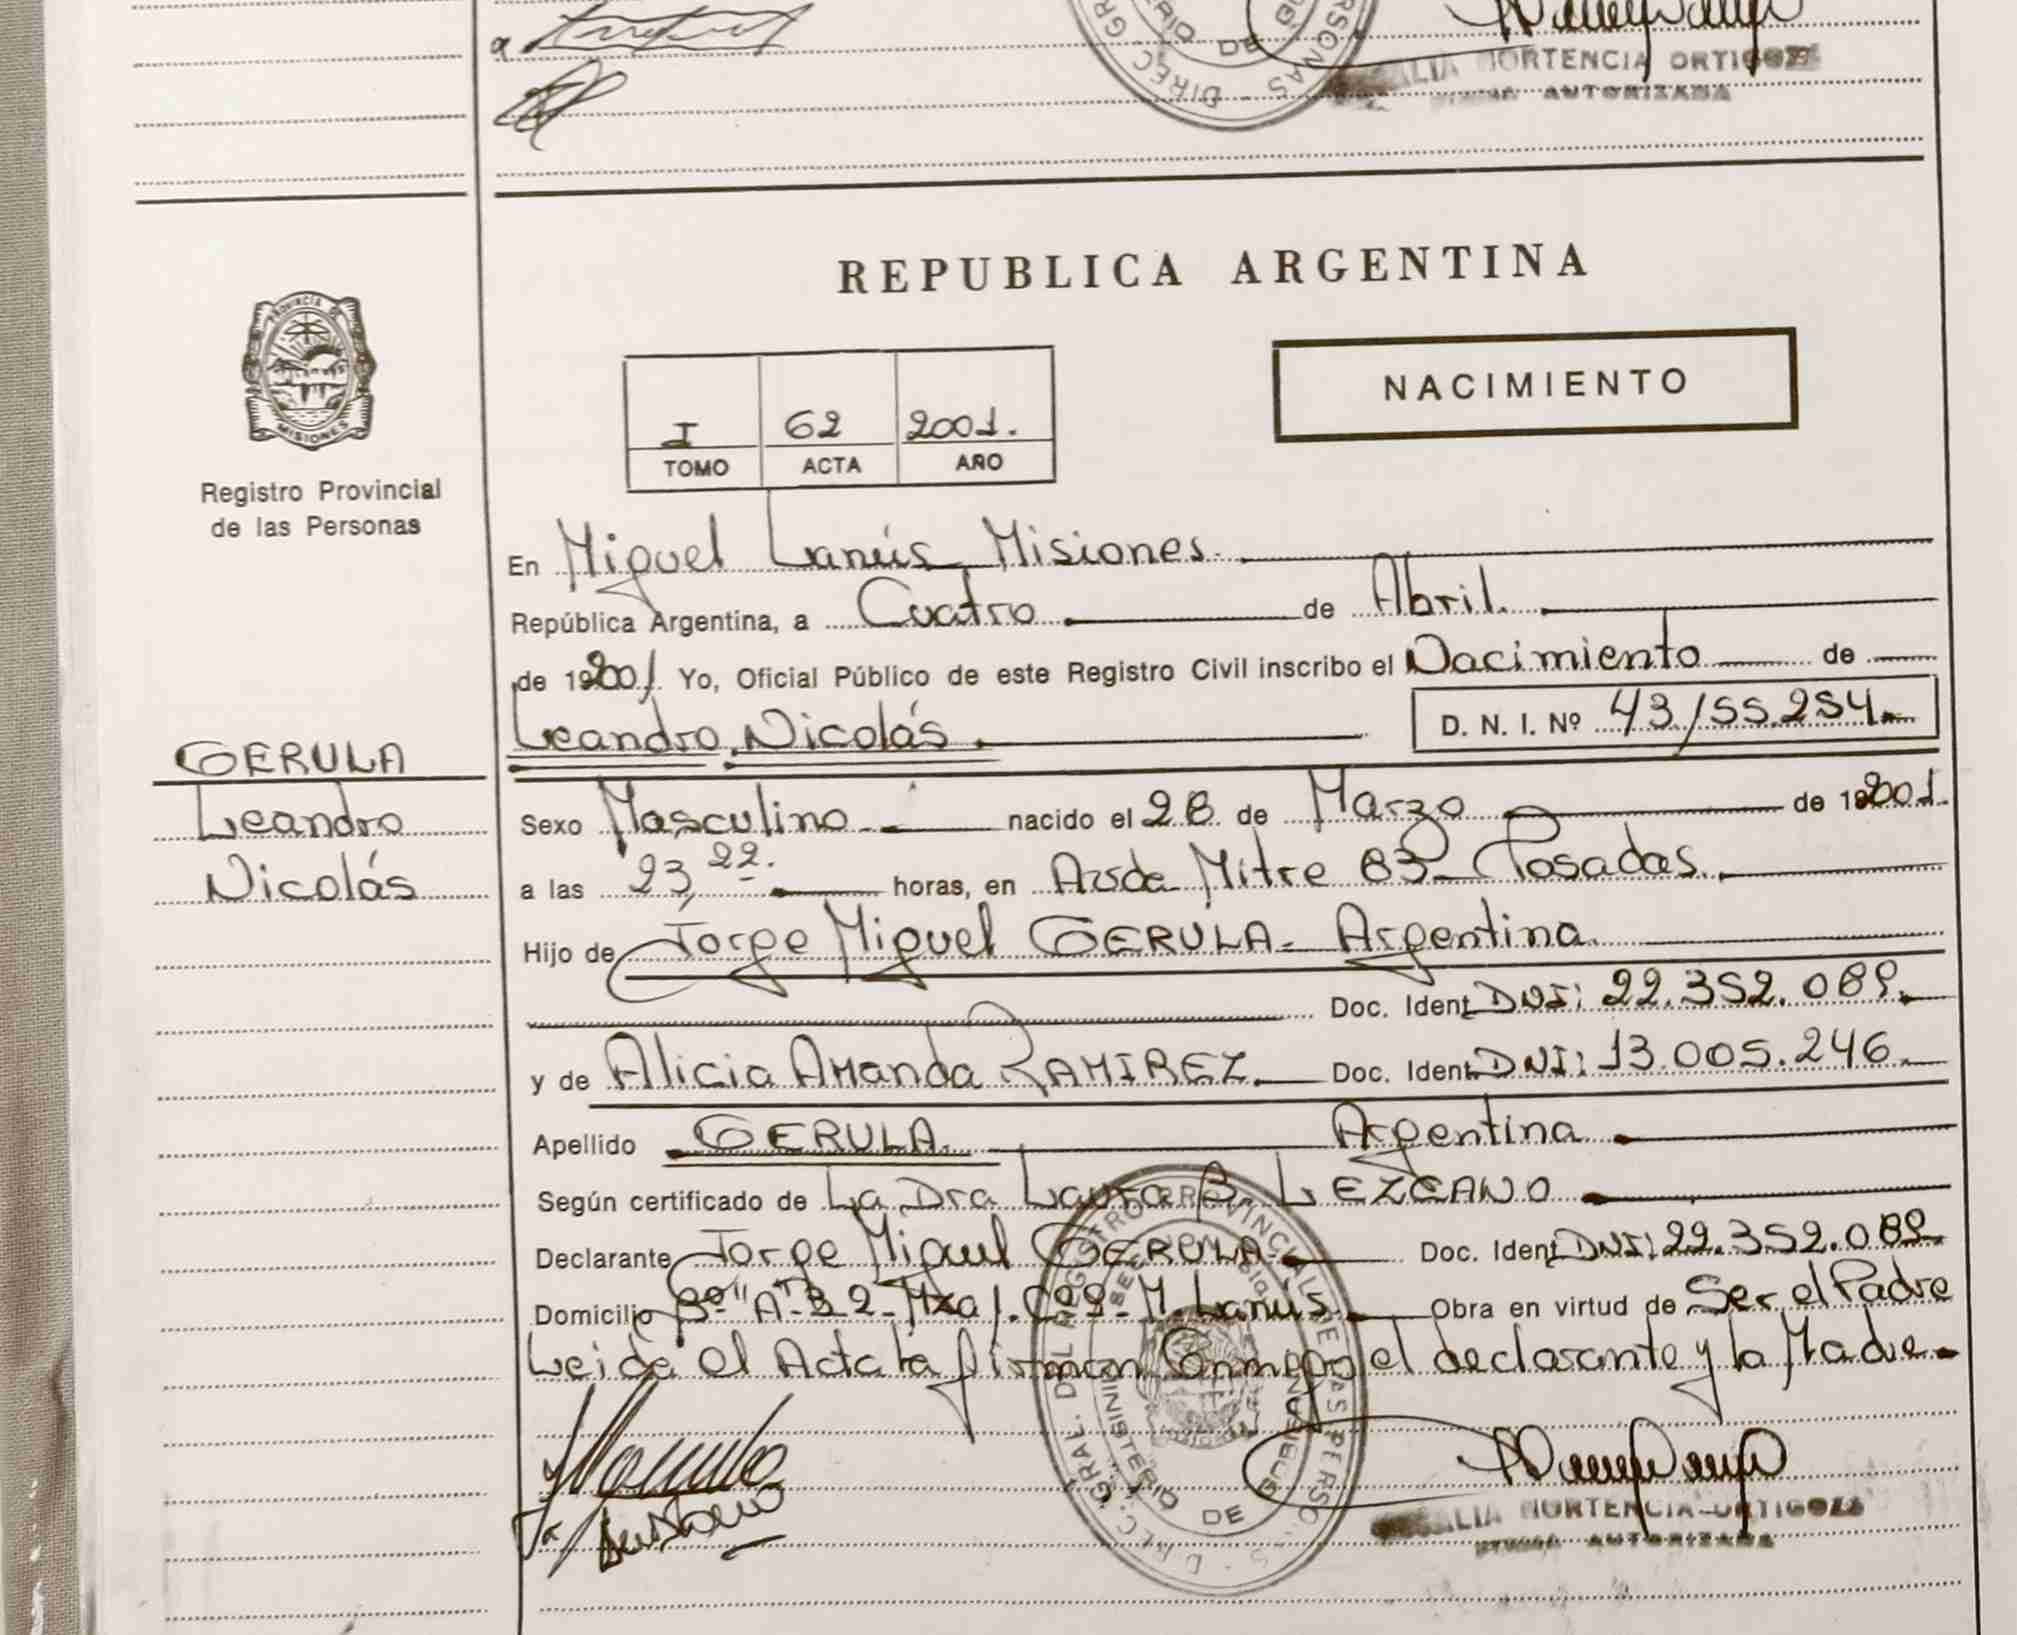 HORTENCIA ORTIGOZA
FIRMA AUTORIZADA
PROVINCIA
MISIONES
Registro Provincial
de las Personas
REPUBLICA ARGENTINA
NACIMIENTO
I 62 2001.
TOMO ACTA AÑO
En Miguel Lanús Misiones.
República Argentina, a Cuatro de Abril.
de 192001 Yo, Oficial Público de este Registro Civil inscribo el Nacimiento de
Leandro Nicolás. D. N. I. Nº 43/55.254.
GERULA
Leandro
Nicolás
Sexo Masculino nacido el 28 de Marzo de 192001.
a las 23,22. horas, en Avda Mitre 83 Posadas.
Hijo de Jorge Miguel GERULA - Argentina.
Doc. Ident. DNI: 22.352.089.
y de Alicia Amanda RAMIREZ. Doc. Ident. DNI: 13.005.246.
Apellido GERULA. Argentina.
Según certificado de La Dra Laura B. LEZCANO
Declarante Jorge Miguel GERULA. Doc. Ident. DNI: 22.352.089.
Domicilio "A" 32 - Mza - M. Lanús. Obra en virtud de Ser el Padre
Leida el Acta la firman Conmigo el declarante y la Madre.
DIREC. GRAL. DEL REGISTRO PROVINCIAL DE LAS PERSONAS
MINISTERIO DE GOBIERNO
HORTENCIA ORTIGOZA
FIRMA AUTORIZADA